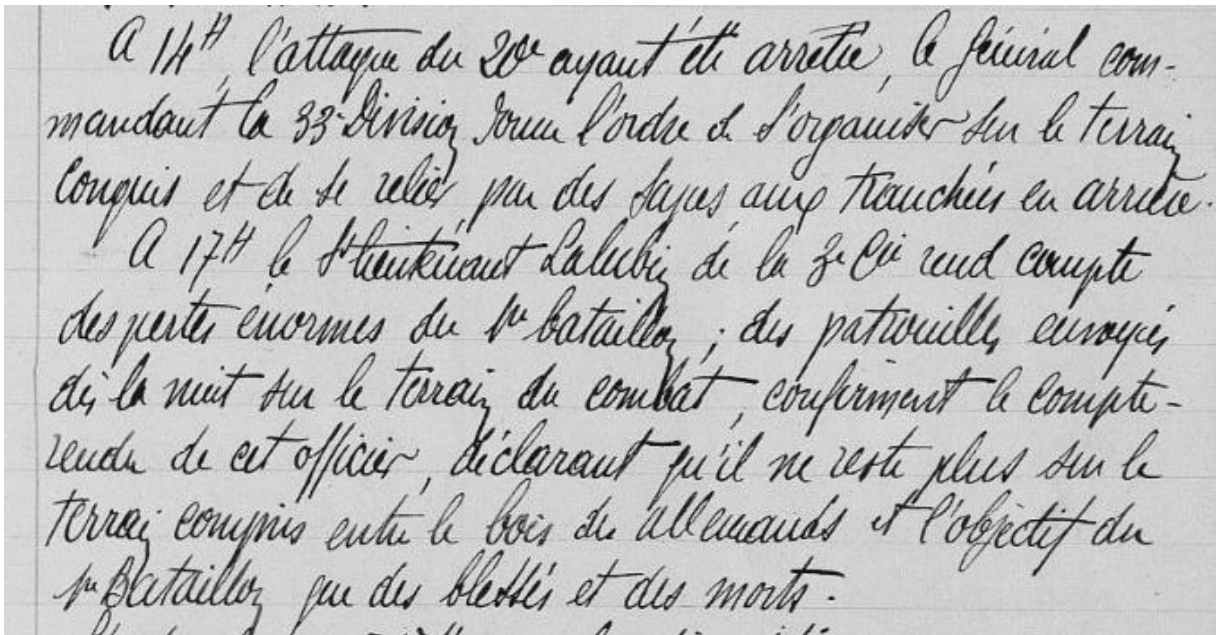 A 14H, l'attaque du 20e ayant été arrêtée, le Général com-
mandant la 33e Division donne l'ordre de s'organiser sur le terrain
conquis et de se relier par des sapes aux tranchées en arrière.
A 17H le St lieutenant Lalubin de la 3e Cie rend compte
des pertes énormes du 1er bataillon ; des patrouilles envoyées
dès la nuit sur le terrain du combat, confirment le compte-
rendu de cet officier, déclarant qu'il ne reste plus sur le
terrain compris entre le bois des allemands et l'objectif du
1er Bataillon que des blessés et des morts.